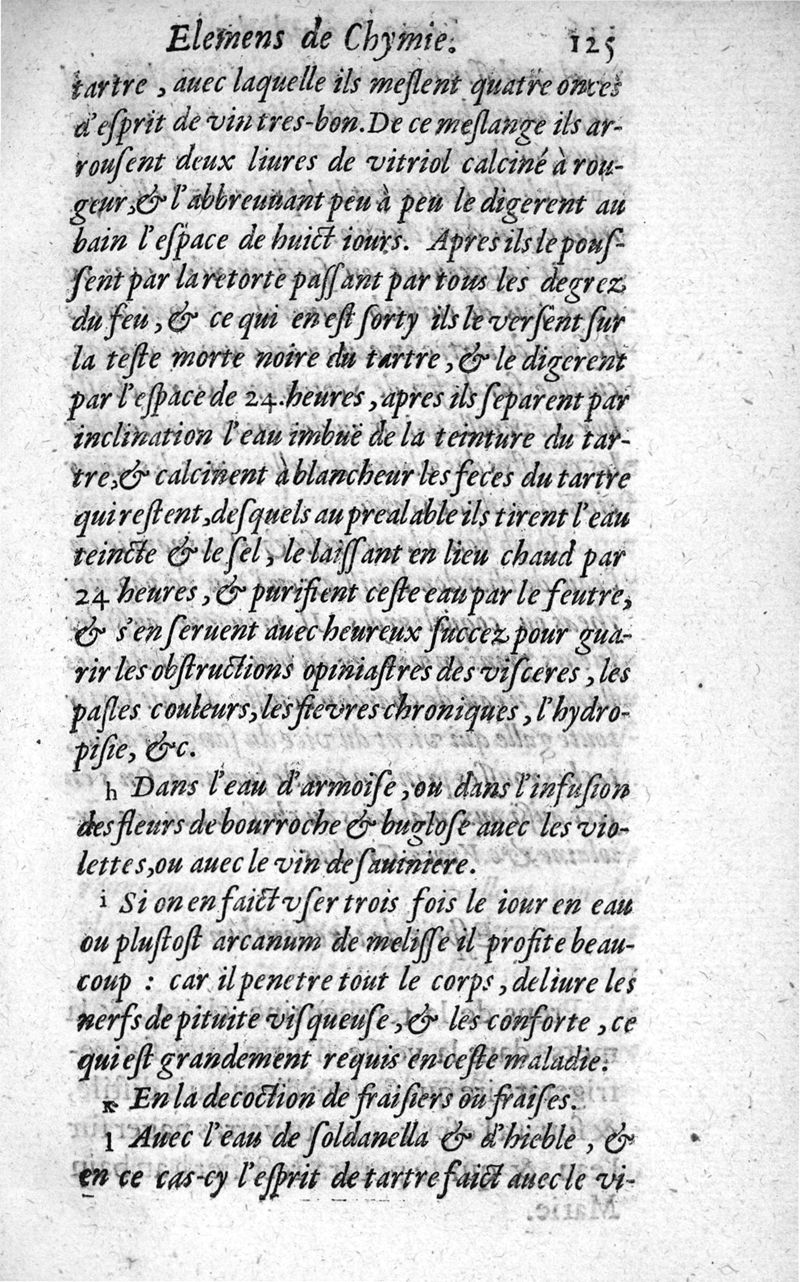 Elemens de Chymie. 125
tartre, auec laquelle ils meſlent quatre onces
d'eſprit de vin tres-bon. De ce meſlange ils ar-
rouſent deux liures de vitriol calciné à rou-
geur, & l'abbreuuant peu à peu le digerent au
bain l'eſpace de huict iours. Apres ils le pouſ-
ſent par la retorte paſſant par tous les degrez
du feu, & ce qui en eſt ſorty ils le verſent ſur
la teſte morte noire du tartre, & le digerent
par l'eſpace de 24. heures, apres ils ſeparent par
inclination l'eau imbuë de la teinture du tar-
tre, & calcinent à blancheur les feces du tartre
qui reſtent, deſquels au prealable ils tirent l'eau
teincte & le ſel, le laiſſant en lieu chaud par
24 heures, & purifient ceſte eau par le feutre,
& s'en ſeruent auec heureux ſuccez pour gua-
rir les obſtructions opiniaſtres des viſceres, les
paſles couleurs, les fievres chroniques, l'hydro-
piſie, &c.
h Dans l'eau d'armoiſe, ou dans l'infuſion
des fleurs de bourroche & bugloſe auec les vio-
lettes, ou auec le vin de ſauiniere.
i Si on en faict vſer trois fois le iour en eau
ou pluſtoſt arcanum de meliſſe il profite beau-
coup : car il penetre tout le corps, deliure les
nerfs de pituite viſqueuſe, & les conforte, ce
qui eſt grandement requis en ceſte maladie.
K En la decoction de fraiſiers ou fraiſes.
l Auec l'eau de ſoldanella & d'hieble, &
en ce cas-cy l'eſprit de tartre faict auec le vi-